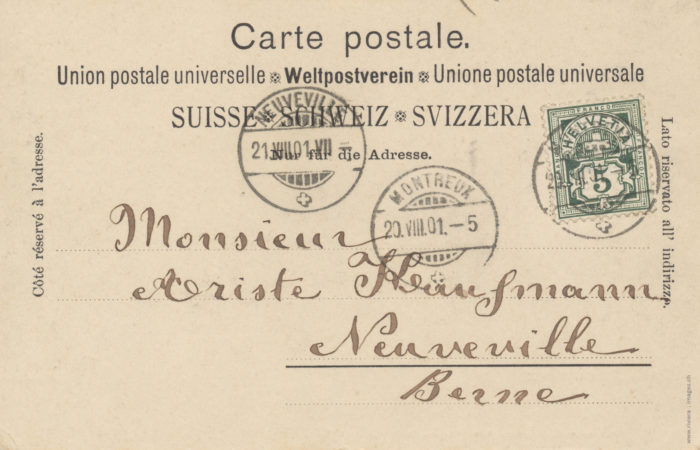 Carte postale.
Union postale universelle ※ Weltpostverein ※ Unione postale universale
SUISSE ※ SCHWEIZ ※ SVIZZERA
Nur für die Adresse.
Côté réservé à l'adresse.
Lato riservato all' indirizzo.
NEUVEVILLE
21.VIII.01.VII
MONTREUX
20.VIII.01.–5
FRANCO
HELVETIA
5
Monsieur
Ariste Kaufmann
Neuveville
Berne
www.riviera-images.ch